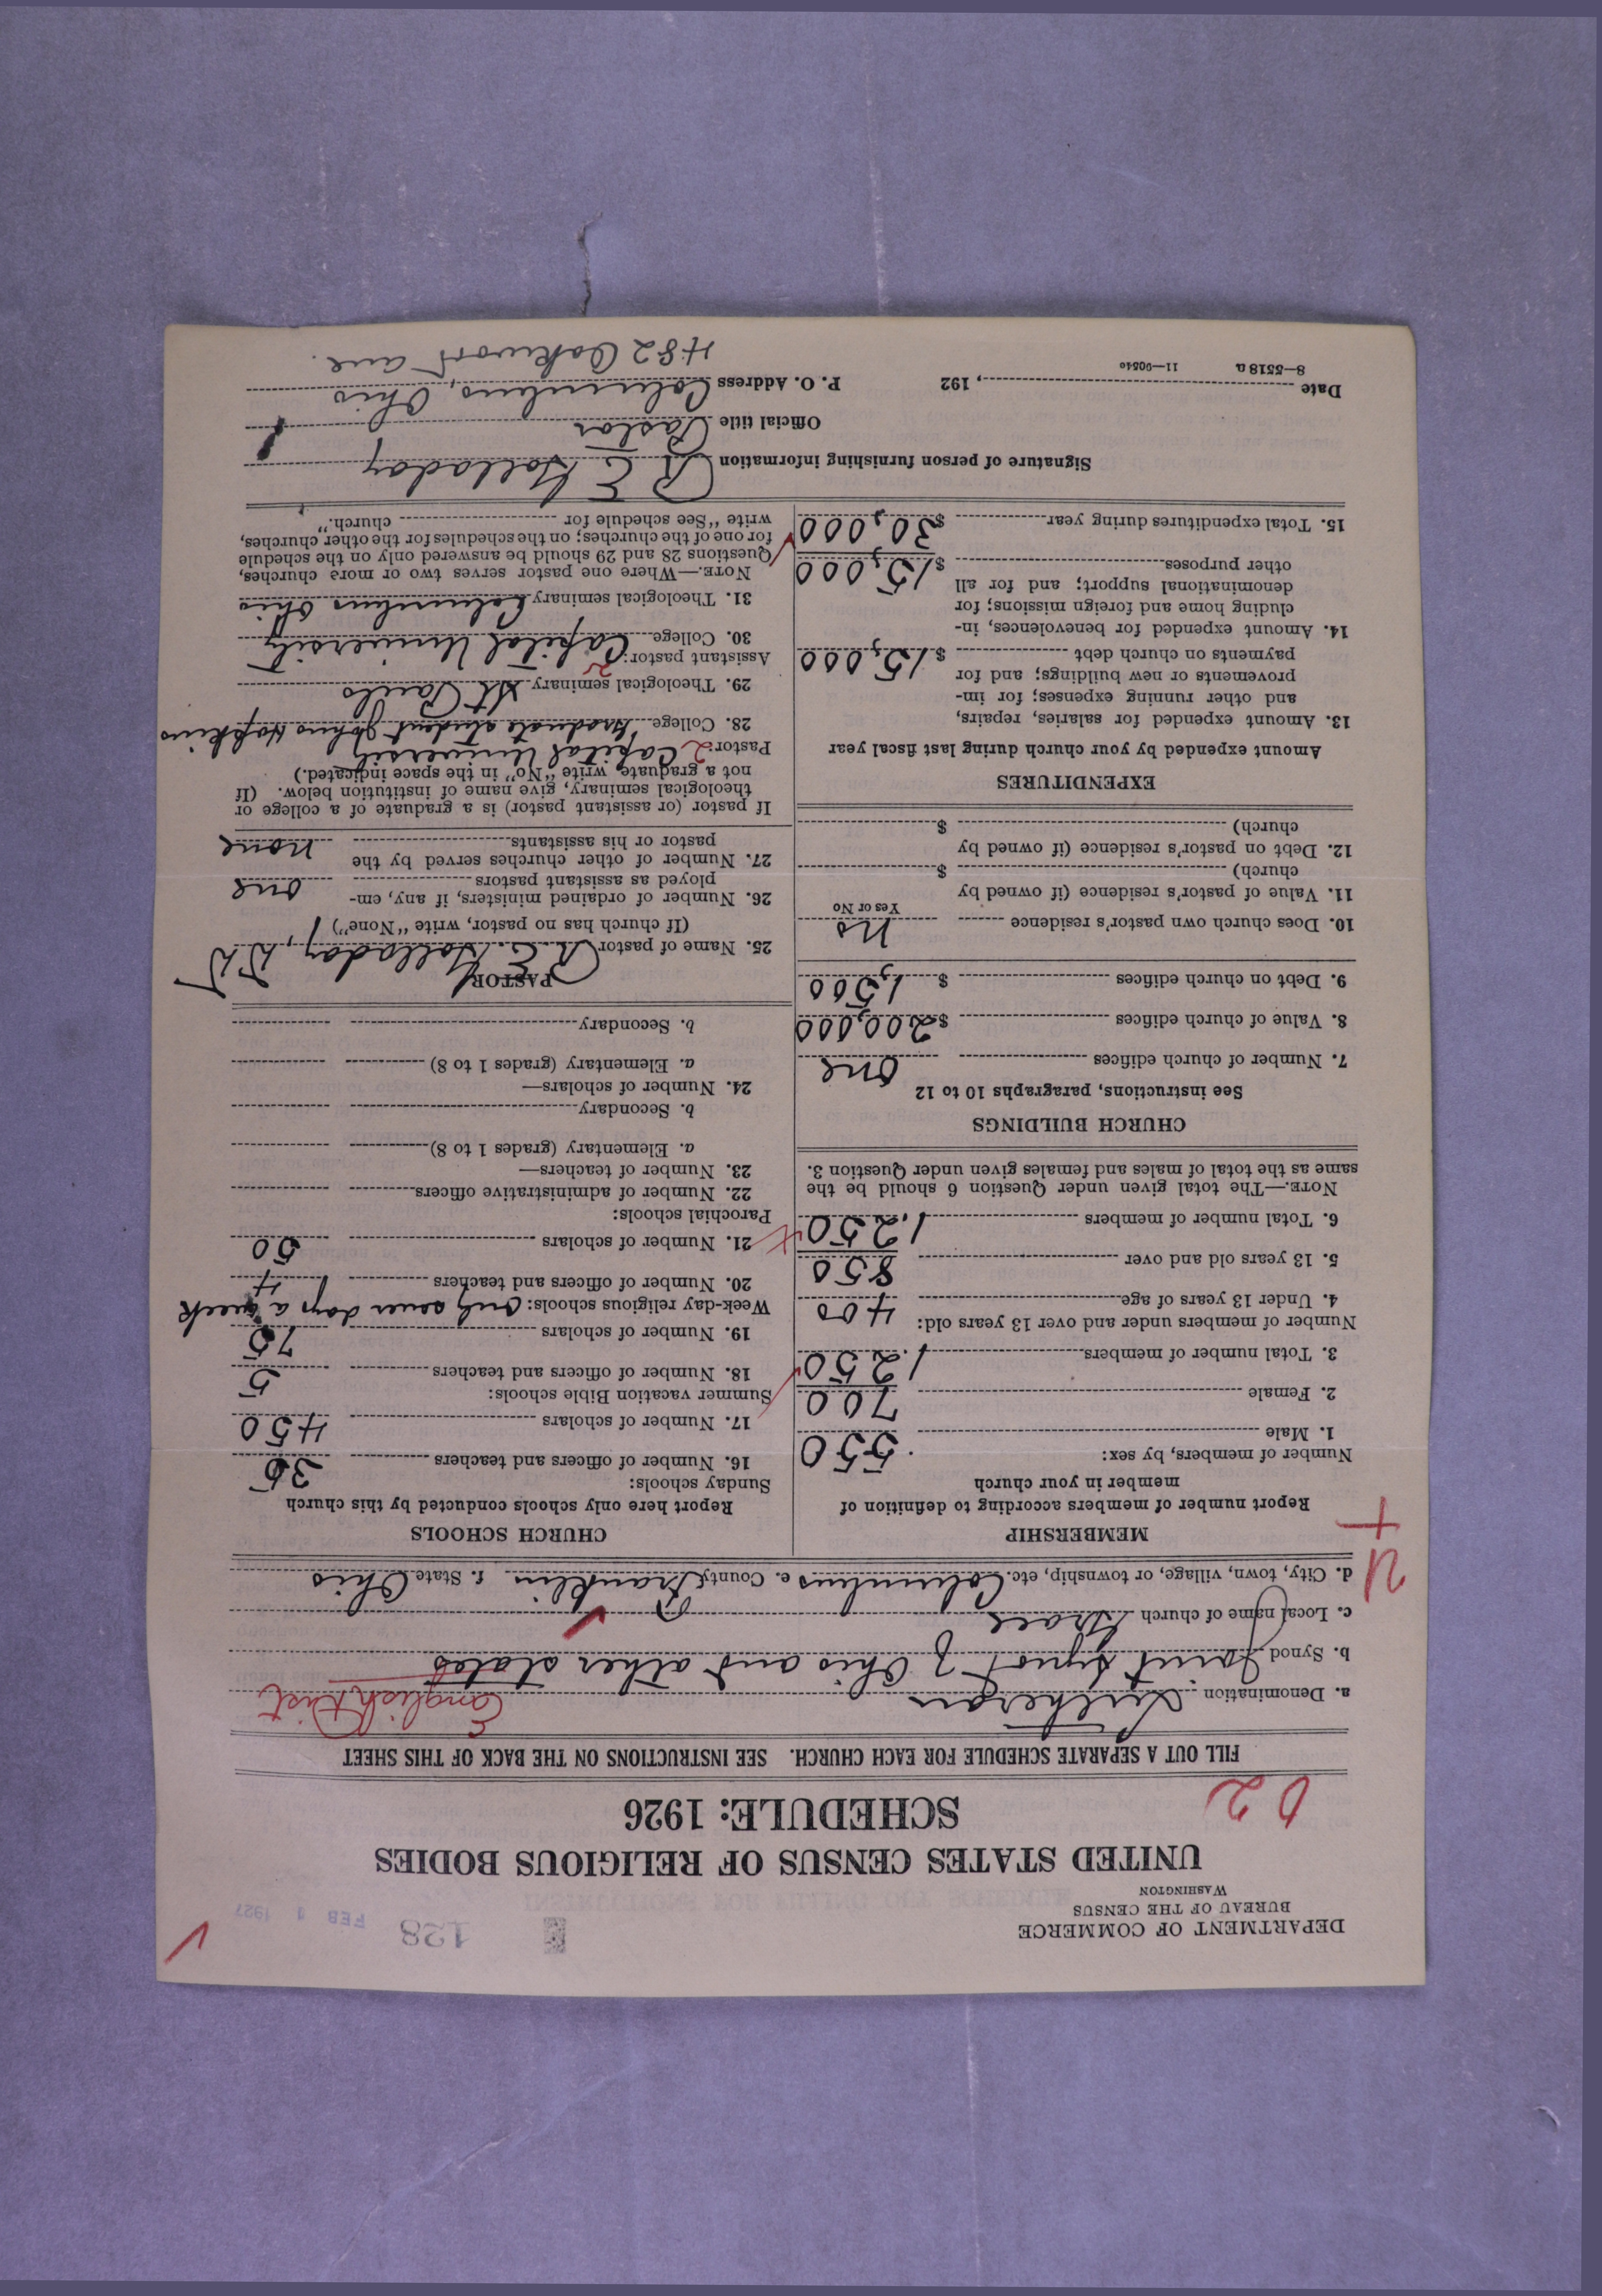 DEPARTMENT OF COMMERCE
BUREAU OF THE CENSUS
WASHINGTON
128
FEB 1 1927
UNITED STATES CENSUS OF RELIGIOUS BODIES
SCHEDULE: 1926
FILL OUT A SEPARATE SCHEDULE FOR EACH CHURCH. SEE INSTRUCTIONS ON THE BACK OF THIS SHEET
a. Denomination Lutheran English Dist
b. Synod Joint Synod of Ohio and other states
c. Local name of church Grace
d. City, town, village, or township, etc. Columbus e. County Franklin f. State Ohio
MEMBERSHIP
Report number of members according to definition of
member in your church
Number of members, by sex:
1. Male 550
2. Female 700
3. Total number of members 1,250
Number of members under and over 13 years old:
4. Under 13 years of age 400
5. 13 years old and over 850
6. Total number of members 1,250
NOTE.—The total given under Question 6 should be the
same as the total of males and females given under Question 3.
CHURCH BUILDINGS
See instructions, paragraphs 10 to 12
7. Number of church edifices one
8. Value of church edifices $200,000
9. Debt on church edifices $1,500
10. Does church own pastor's residence No
Yes or No
11. Value of pastor's residence (if owned by
church) $
12. Debt on pastor's residence (if owned by
church) $
EXPENDITURES
Amount expended by your church during last fiscal year
13. Amount expended for salaries, repairs,
and other running expenses; for im-
provements or new buildings; and for
payments on church debt $15,000
14. Amount expended for benevolences, in-
cluding home and foreign missions; for
denominational support; and for all
other purposes $15,000
15. Total expenditures during year $30,000
CHURCH SCHOOLS
Report here only schools conducted by this church
Sunday schools:
16. Number of officers and teachers 36
17. Number of scholars 450
Summer vacation Bible schools:
18. Number of officers and teachers 5
19. Number of scholars 75
Week-day religious schools: Only seven days a week
20. Number of officers and teachers 4
21. Number of scholars 50
Parochial schools:
22. Number of administrative officers
23. Number of teachers—
a. Elementary (grades 1 to 8)
b. Secondary
24. Number of scholars—
a. Elementary (grades 1 to 8)
b. Secondary
PASTOR
25. Name of pastor R. E. Golladay, D D
(If church has no pastor, write "None")
26. Number of ordained ministers, if any, em-
ployed as assistant pastors one
27. Number of other churches served by the
pastor or his assistants none
If pastor (or assistant pastor) is a graduate of a college or
theological seminary, give name of institution below. (If
not a graduate, write "No" in the space indicated.)
Pastor: 2 Capital University
28. College Graduate student Johns Hopkins
29. Theological seminary St Pauls
Assistant pastor:
30. College Capital University
31. Theological seminary Columbus Ohio
NOTE.—Where one pastor serves two or more churches,
Questions 28 and 29 should be answered only on the schedule
for one of the churches; on the schedules for the other churches,
write "See schedule for church."
Signature of person furnishing information R E Golladay
Official title Pastor
Date , 192 P. O. Address Columbus, Ohio
8—5518 a 11—90540
482 Oakwood ave.